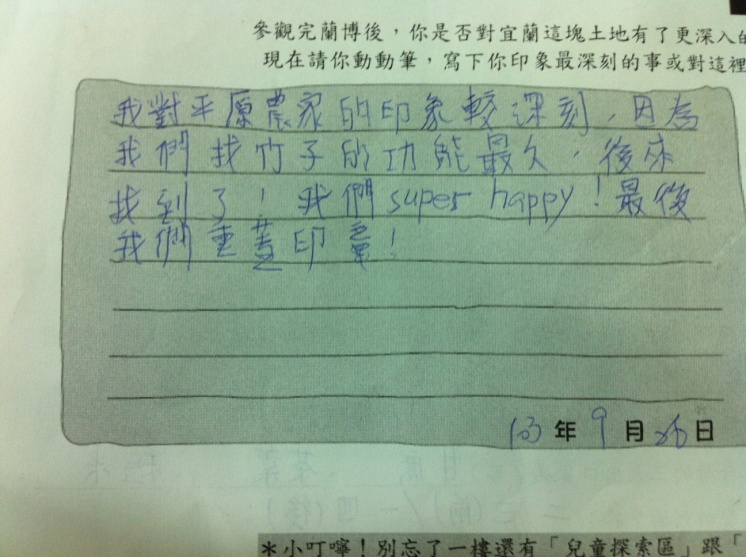 參觀完蘭博後，你是否對宜蘭這塊土地有了更深入的
現在請你動動筆，寫下你印象最深刻的事或對這裡
我對平原農家的印象較深刻，因為
我們找竹子的功能最久，後來
找到了！我們super happy！最後
我們重蓋印章！
103年9月26日
*小叮嚀！別忘了一樓還有「兒童探索區」跟「